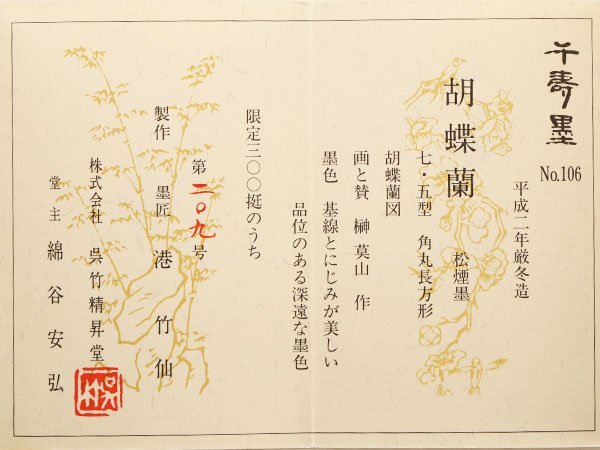 千寿墨
No.106
平成二年厳冬造
胡蝶蘭　松煙墨
七・五型　角丸長方形
胡蝶蘭図
画と賛　榊莫山　作
墨色　基線とにじみが美しい
品位のある深遠な墨色
限定三〇〇挺のうち
第二〇九号
製作　墨匠　港竹仙
株式会社　呉竹精昇堂
堂主　綿谷安弘
呉竹